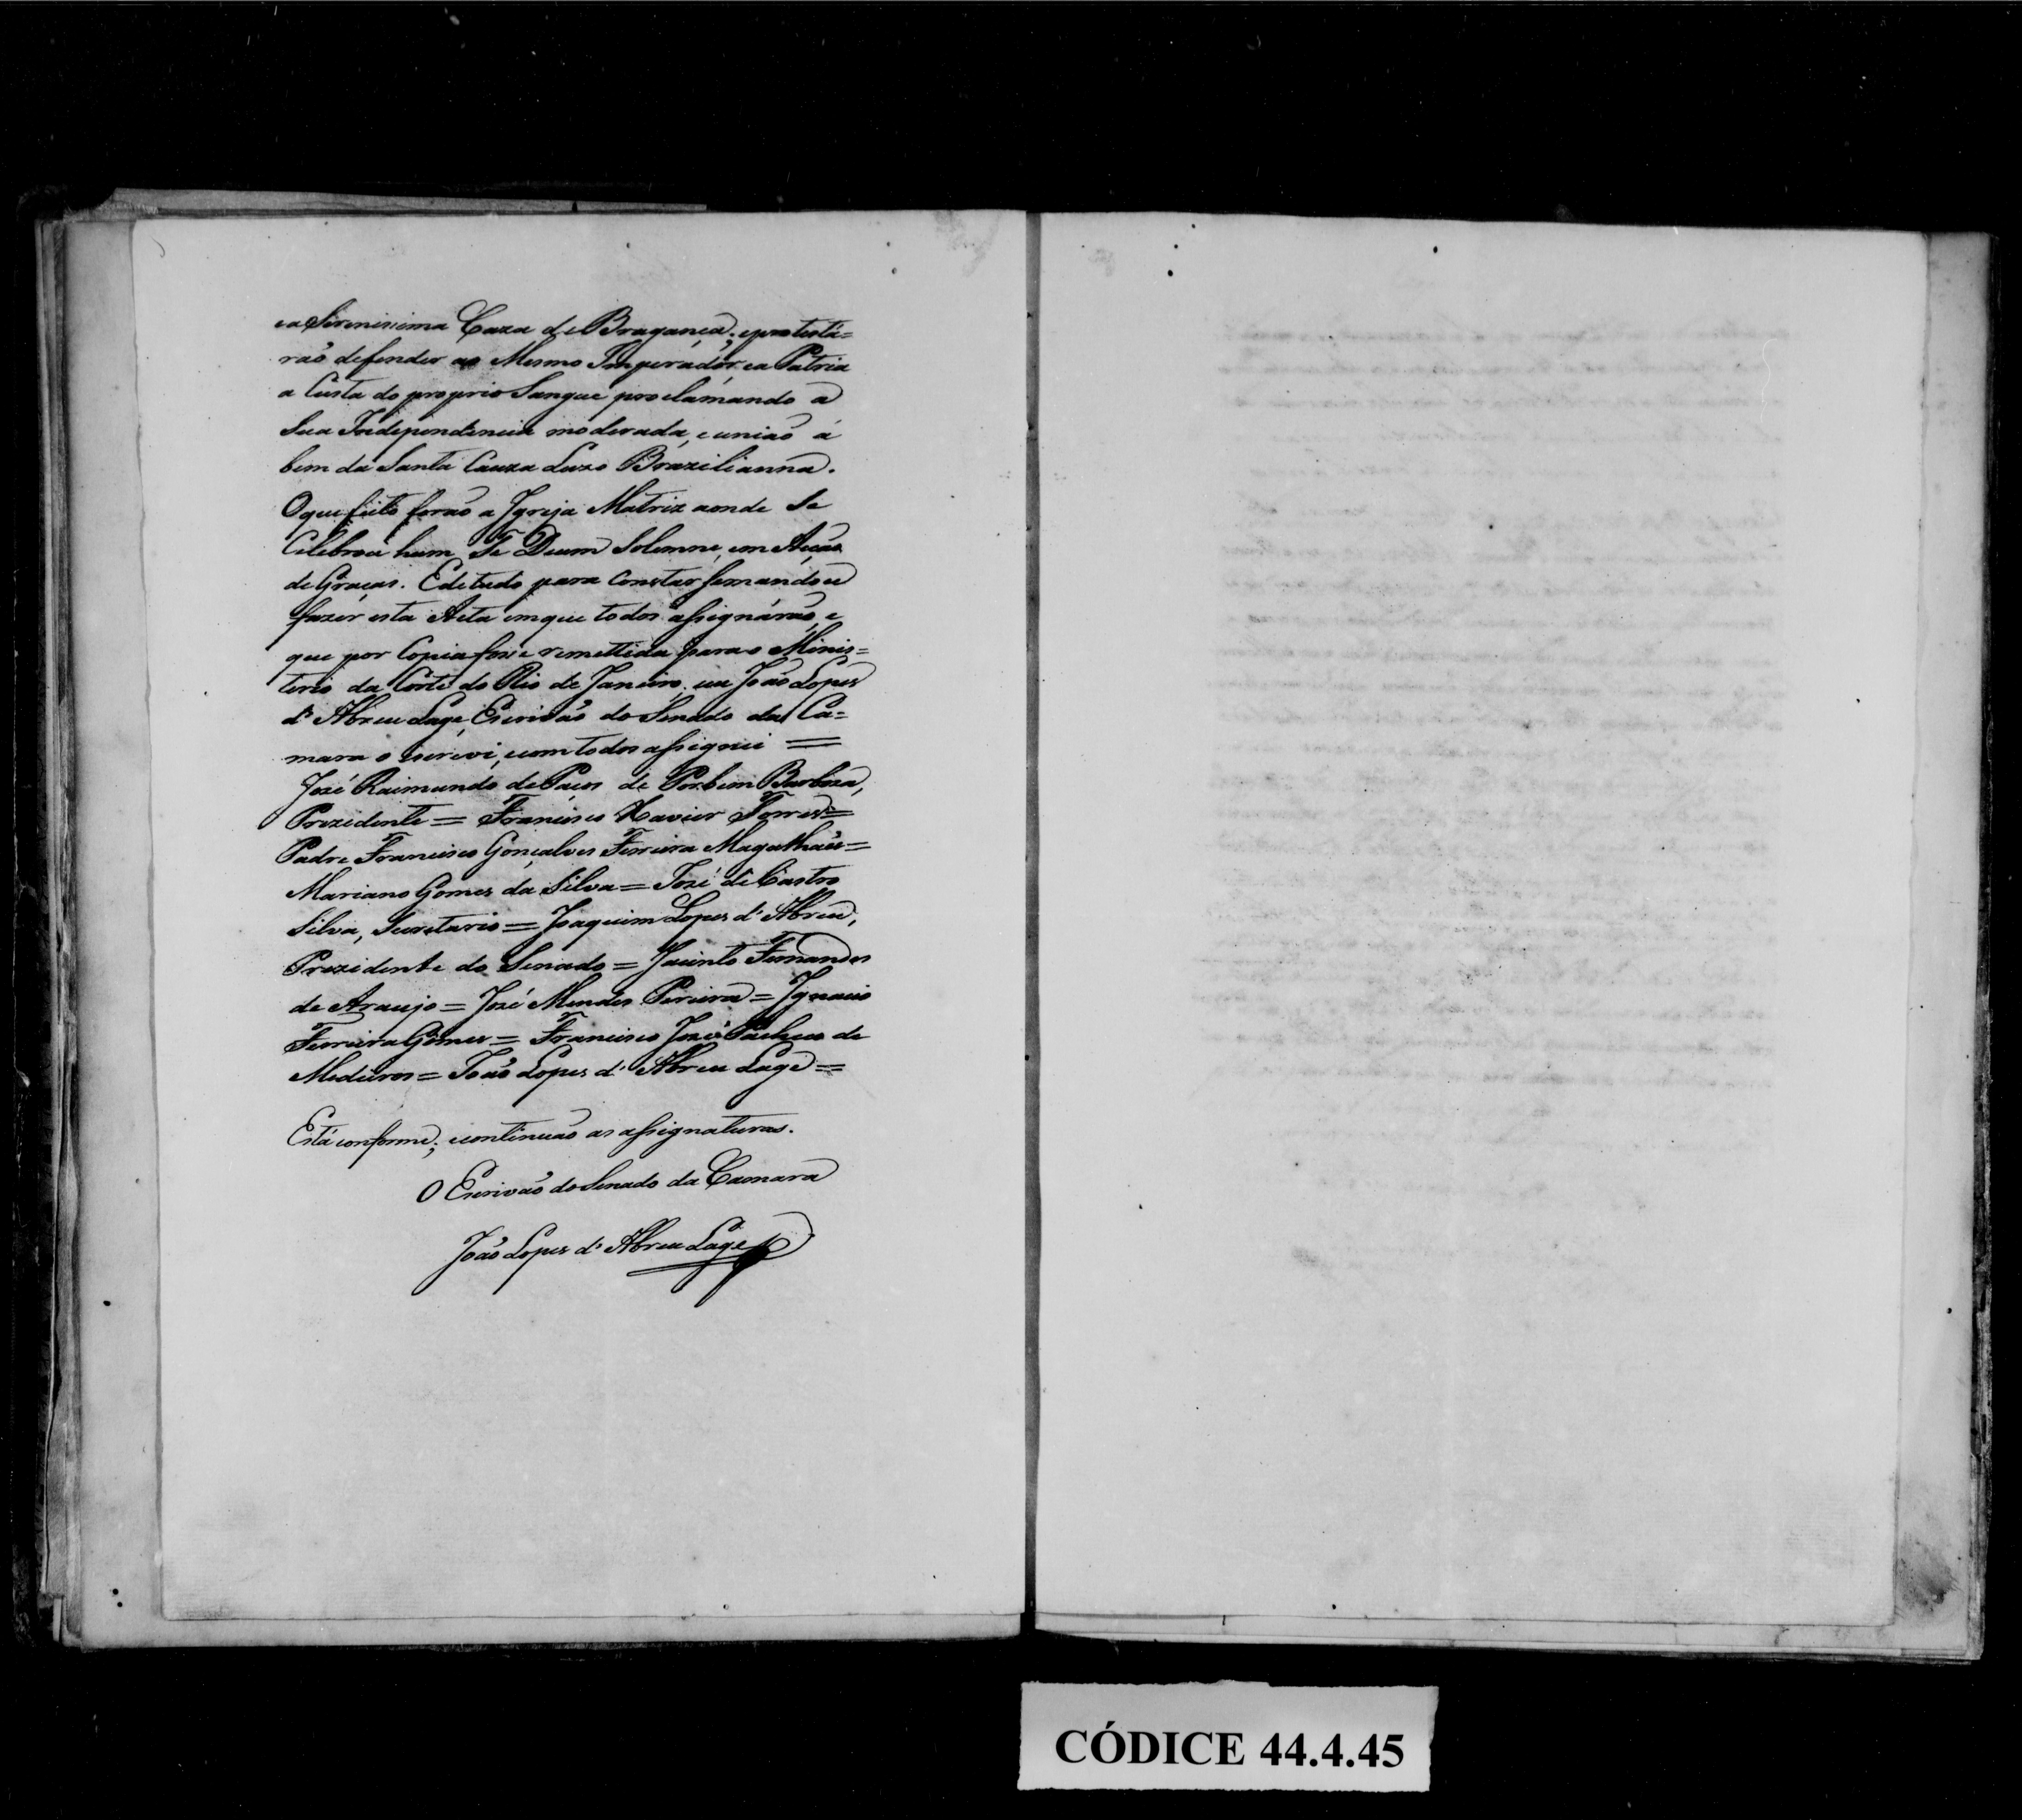 ea Serenissima Caza de Bragança; eprotestá=
raõ defender ao Mesmo Imperador, ea Patria
a Custa do proprio Sangue proclamando a
Sua Independencia moderada, e uniaõ á
bem da Santa Cauza Luzo Brazilianna.
Oque feito foraõ a Igreja Matriz aonde se
Celebrou hum Te Deum Solemne, em Acçaõ
de Graças. Edetudo para Constar semandou
fazer esta Acta emque todos assignáraõ, e
que por Copia fosse remettida para o Minis=
terio da Côrte do Rio de Janeiro. eu Joaõ Lopes
d'Abreu Lage, Escrivaõ do Senado da Ca=
mara o escrevi, ecom todos assignei =
José Raimundo de Paços de Porbem Barboza,
Prezidente = Francisco Xavier Torres =
Padre Francisco Gonçalves Ferreira Magalhães =
Mariano Gomes da Silva = José de Castro
Silva, Secretario = Joaquim Lopes d'Abreu,
Prezidente do Senado = Jacinto Fernandes
de Araujo = José Mendes Pereira = Ignacio
Ferreira Gomes = Francisco José Pacheco de
Medeiros = Joaõ Lopes d'Abreu Lage =
Está conforme; econtinuaõ as assignaturas.
O Escrivaõ do Senado da Camara
Joaõ Lopes d'Abreu Lage
CÓDICE 44.4.45